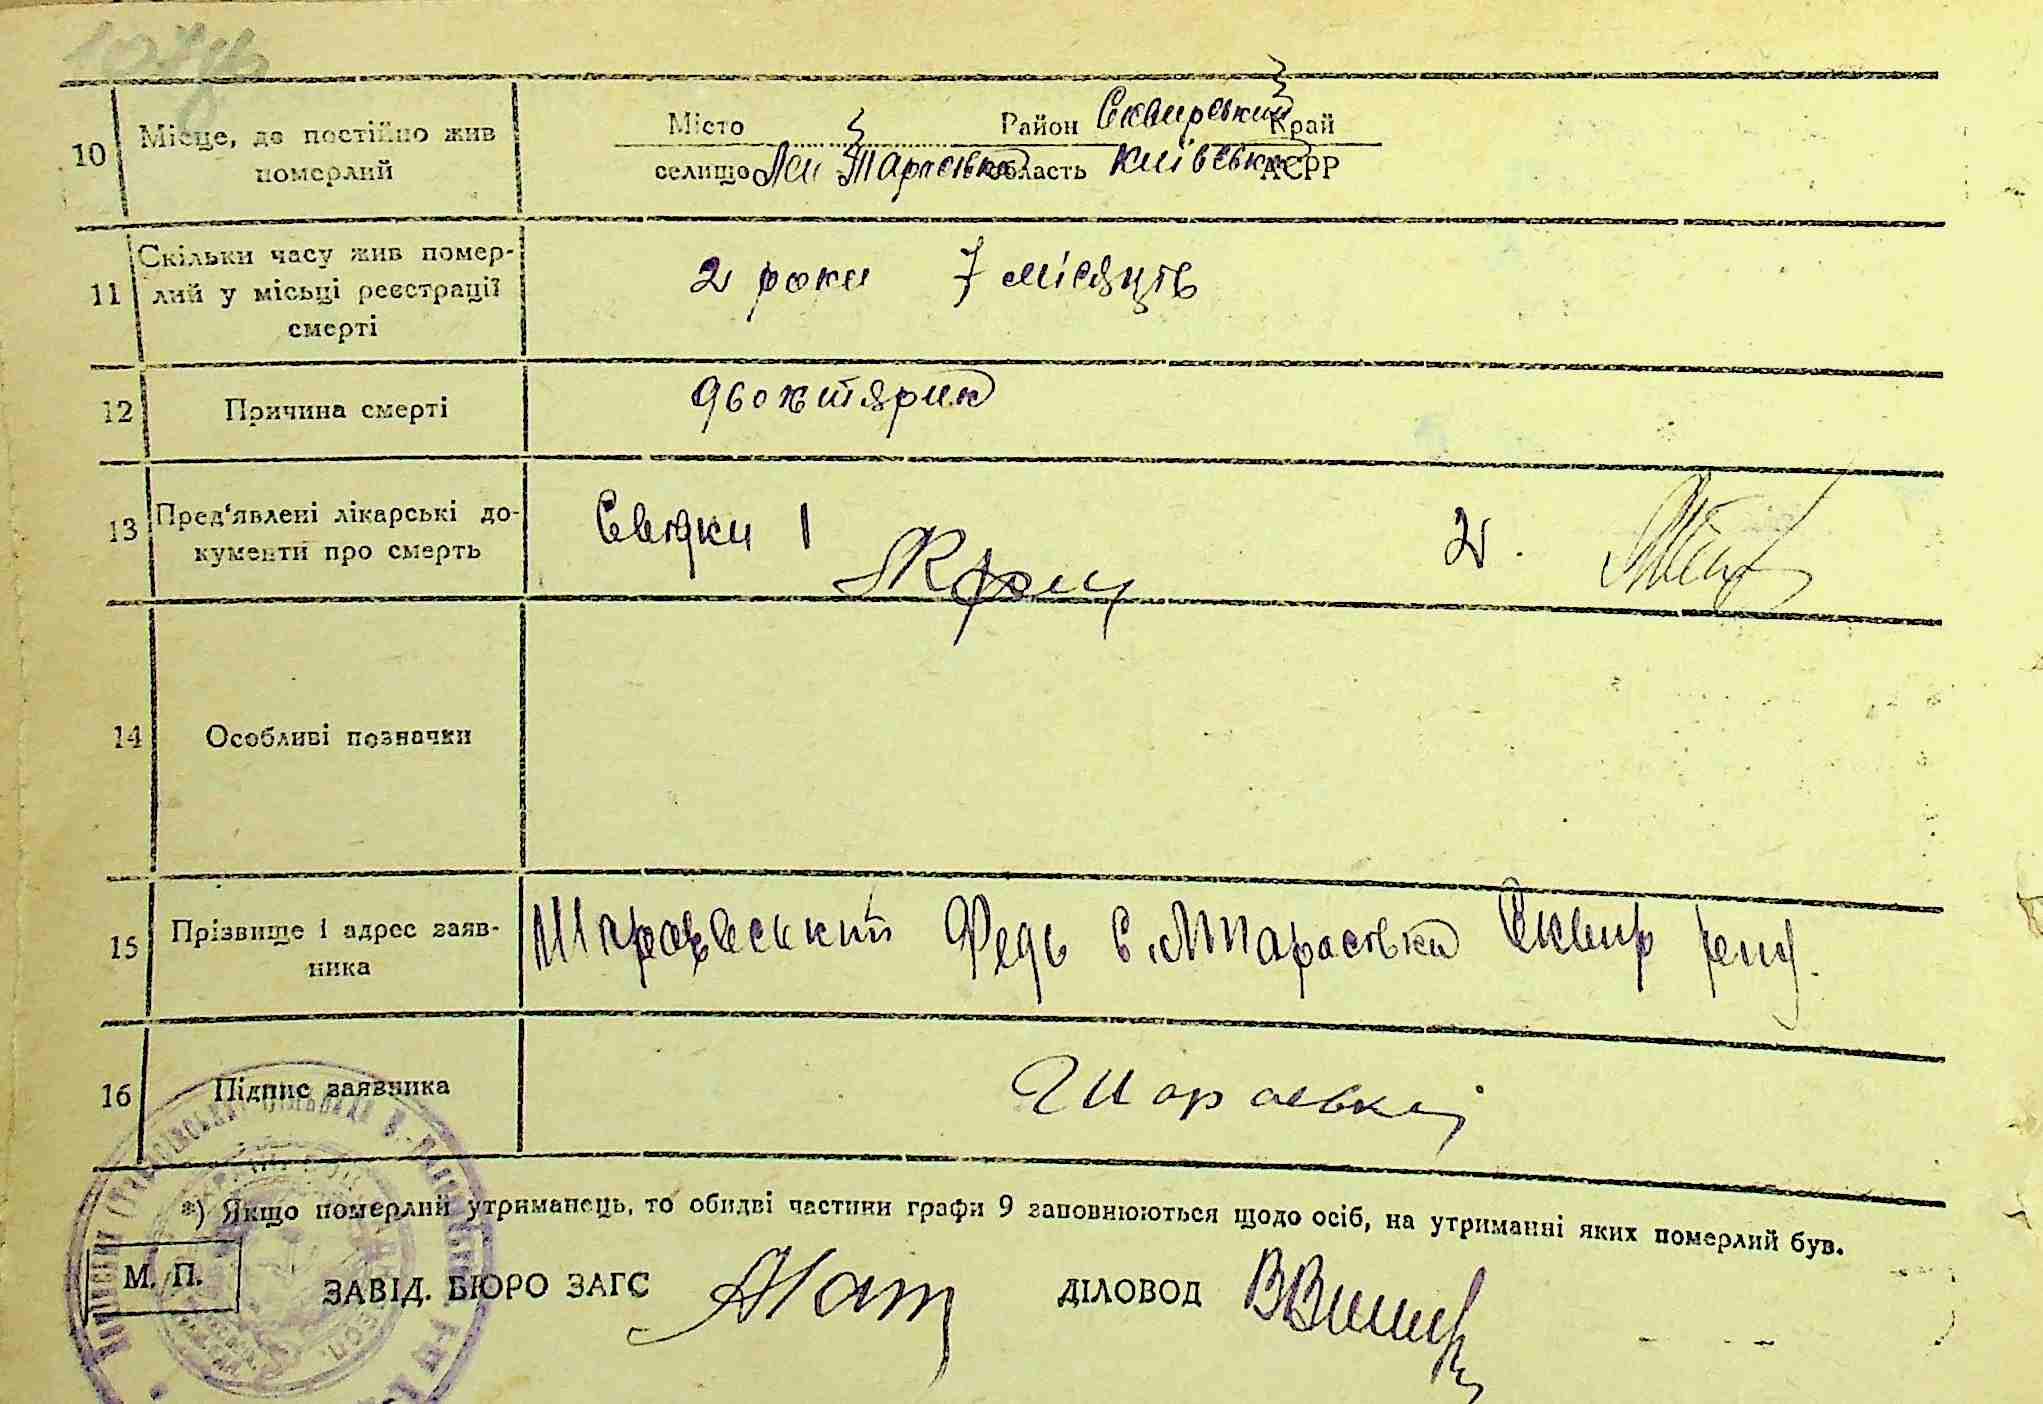 10 Місце, де постійно жив
померлий
Місто Район Сквирський Край
селище М Тарасівка область Київська АСРР
11 Скільки часу жив помер-
лий у місьці реєстрації
смерті
2 роки 7 місяців
12 Причина смерті
13 Пред'явлені лікарські до-
кументи про смерть
Свідки 1 2.
14 Особливі позначки
15 Прізвище і адрес заяв-
ника
Федь с. М Тарасівка Сквир
16 Підпис заявника
*) Якщо померлий утриманець, то обидві частини графи 9 заповнюються щодо осіб, на утриманні яких померлий був.
М. П.
ЗАВІД. БЮРО ЗАГС ДІЛОВОД